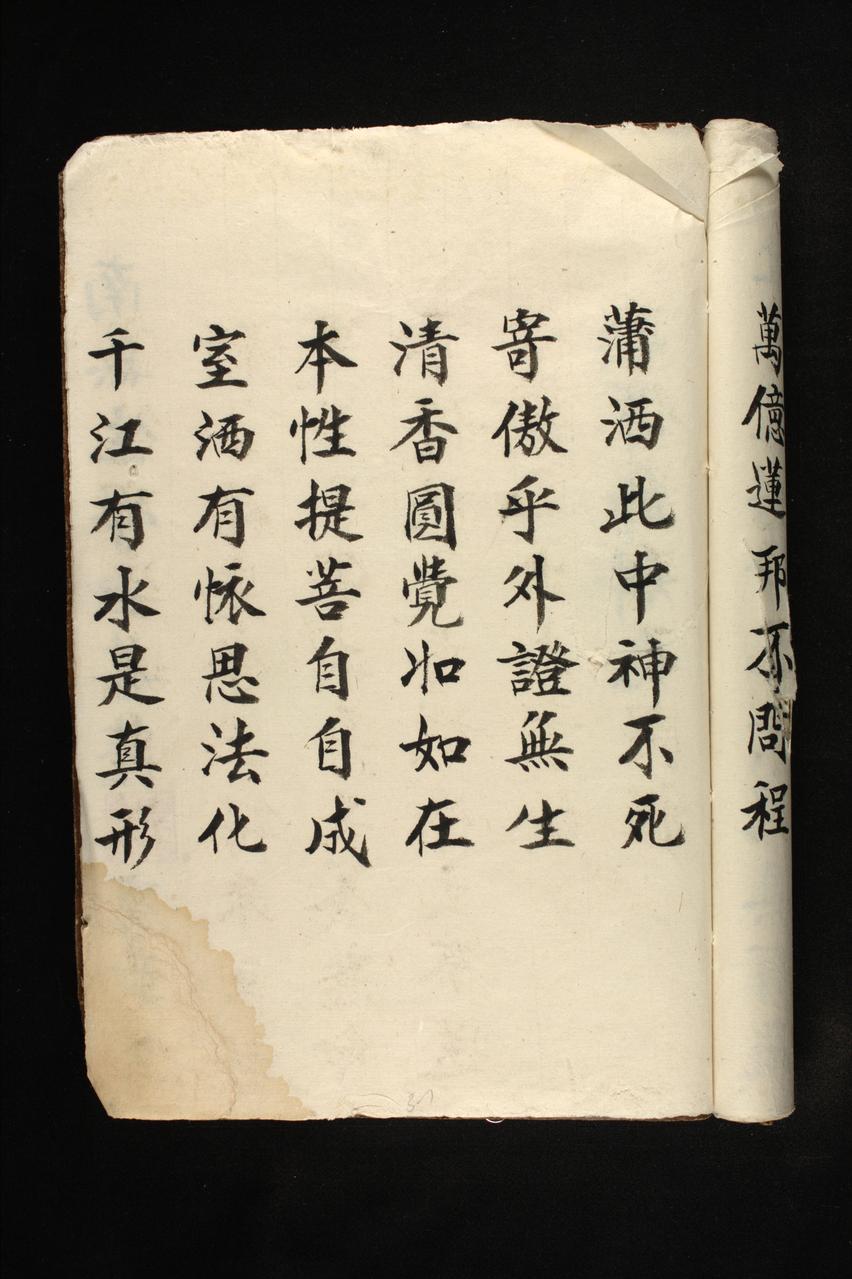 萬億蓮邦不問程
蒲洒此中神不死
寄傲乎外證無生
清香圓覺如在
本性提菩自自成
室洒有恷思法化
千江有水是真形